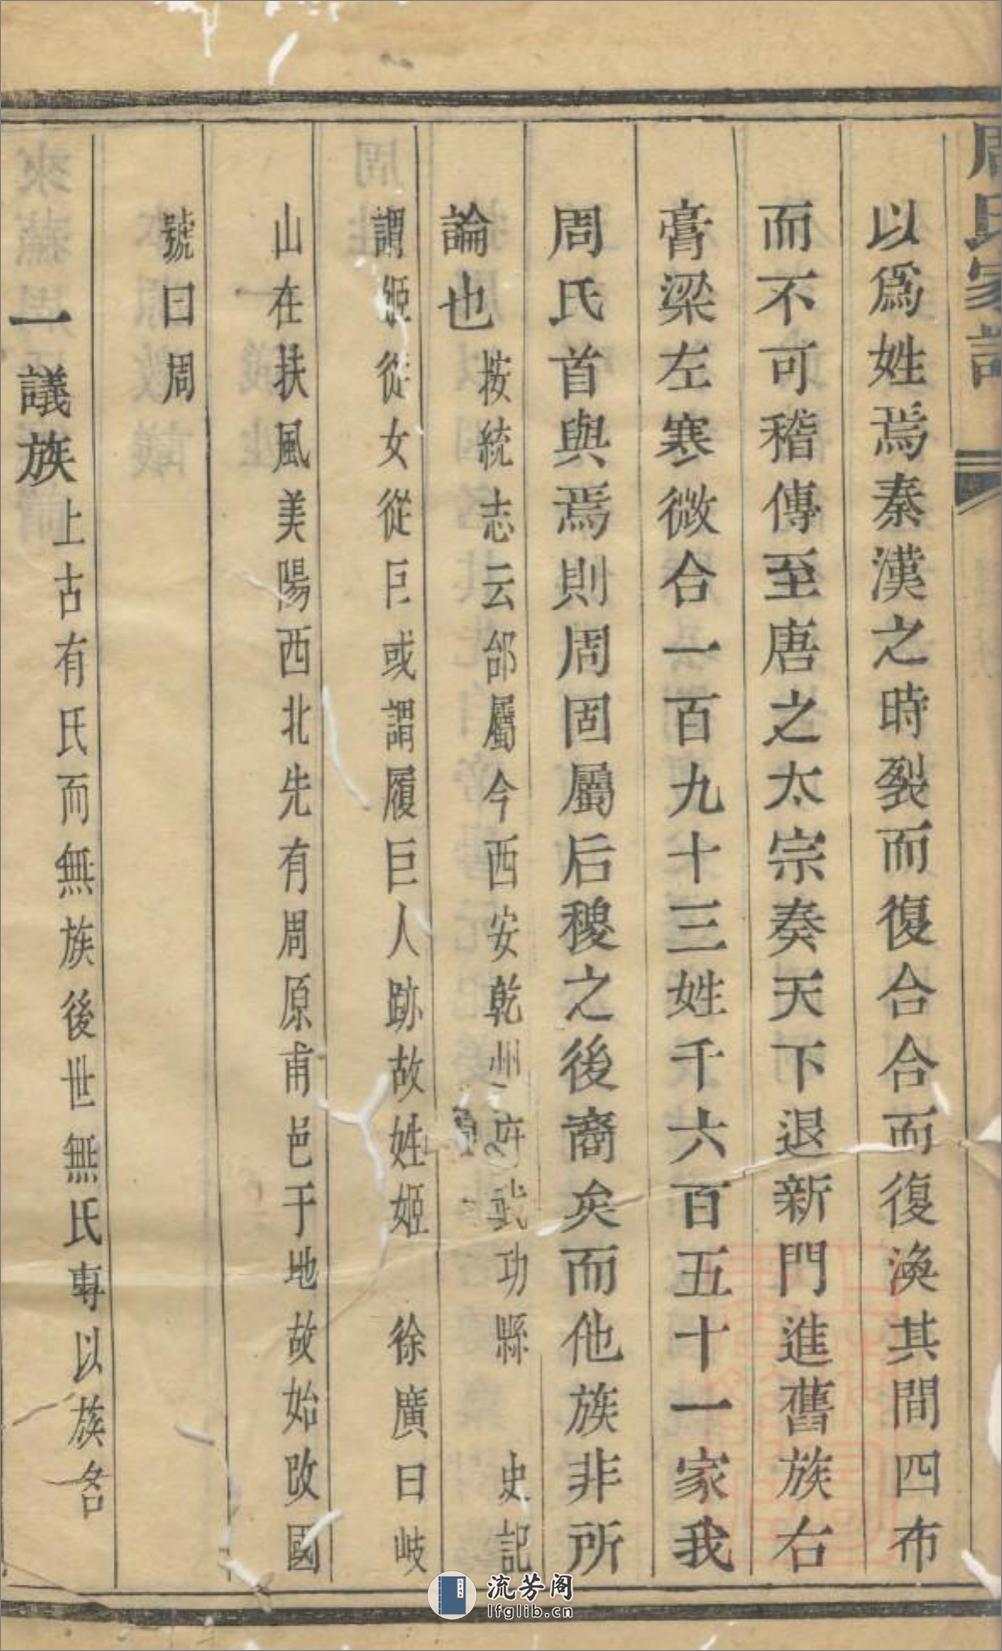 周氏家
以爲姓焉秦漢之時裂而復合合而復渙其間四布
而不可稽傳至唐之太宗奏天下退新門進舊族右
膏梁左寒微合一百九十三姓千六百五十一家我
周氏首與焉則周固屬后稷之後裔矣而他族非所
論也按統志云邰屬今西安乾州武功縣 史記
謂姬從女從巨或謂履巨人跡故姓姬 徐廣曰岐
山在扶風美陽西北先有周原甫邑于地故始改國
號曰周
一議族上古有氏而無族後世無氏專以族名
流芳阁
lfglib.cn